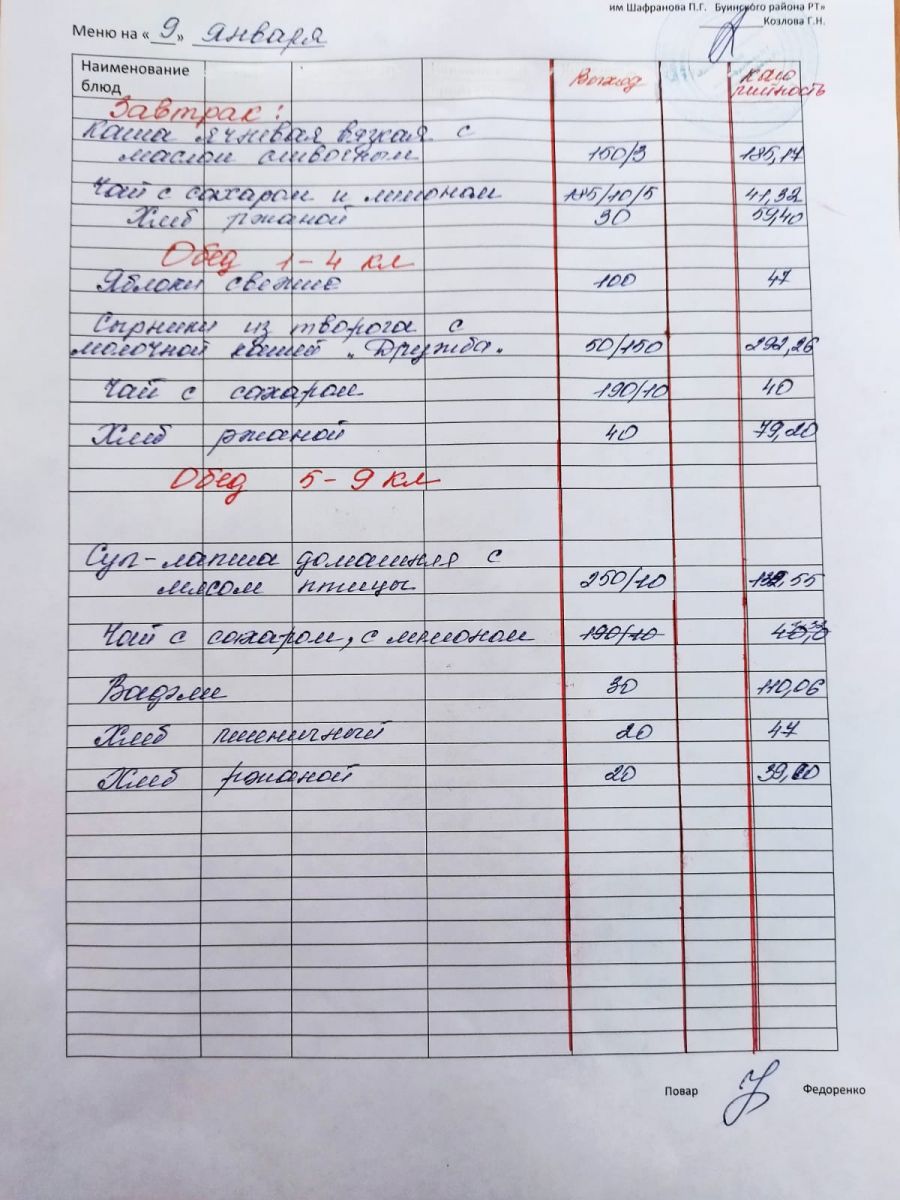 им Шафранова П.Г. Буинского района РТ»
Козлова Г.Н.
Меню на « 9 » января
Наименование блюд Выход Кало рийность
Завтрак:
Каша ячневая вязкая с
маслом сливочным 150/3 185,17
Чай с сахаром и лимоном 185/10/5 41,32
Хлеб ржаной 30 59,40
Обед 1-4 кл
Яблоки свежие 100 47
Сырники из творога с
молочной кашей „Дружба" 50/150 292,26
Чай с сахаром 190/10 40
Хлеб ржаной 40 79,20
Обед 5-9 кл
Суп-лапша домашняя с
мясом птицы 250/10
Чай с сахаром, с лимоном 190/10
Вафли 30 110,06
Хлеб пшеничный 20 47
Хлеб ржаной 20
Повар Федоренко